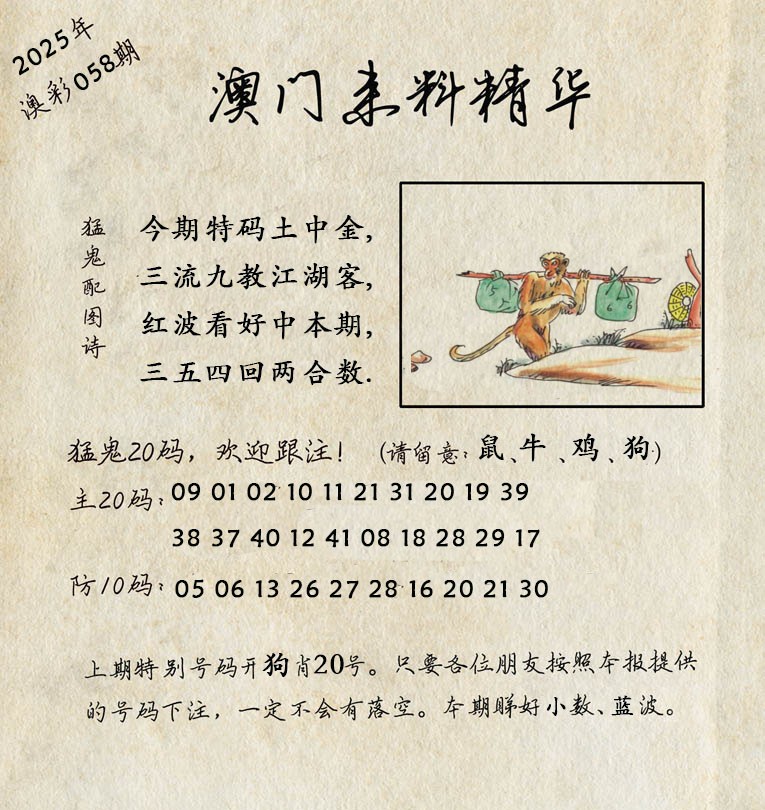 2025年
澳彩058期
澳门来料精华
猛鬼配图诗
今期特码土中金,
三流九教江湖客,
红波看好中本期,
三五四回两合数.
猛鬼20码，欢迎跟注！（请留意：鼠、牛、鸡、狗）
主20码：09 01 02 10 11 21 31 20 19 39
38 37 40 12 41 08 18 28 29 17
防10码：05 06 13 26 27 28 16 20 21 30
上期特别号码开狗肖20号。只要各位朋友按照本报提供
的号码下注，一定不会有落空。本期睇好小数、蓝波。